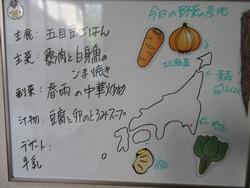 今日の野菜の産地
主食: 五目豆ごはん
主菜: 鶏肉と白身魚の
ごま焼き
副菜: 春雨の中華炒め
汁物: 豆腐と卵のとろみスープ
デザート:
牛乳
北海道
青森